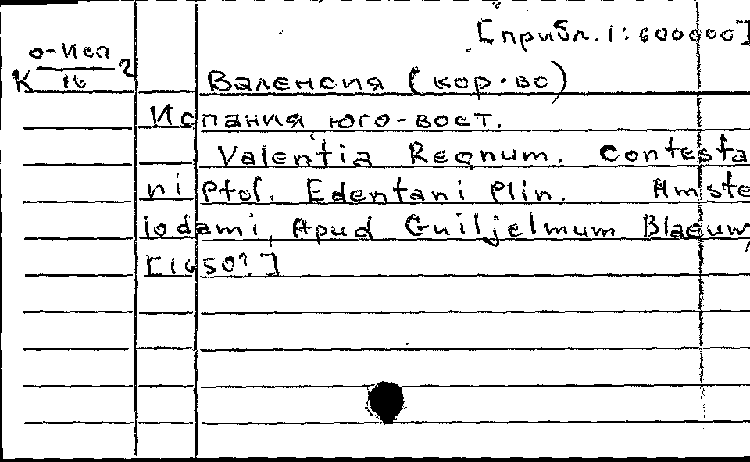 [прибл. 1:600000]
о-Исп
К 16 2
Валенсия (кор-во)
Испания юго-вост.
Valentia Regnum. Contesta
ni Ptol. Edentani Plin. Amste
lodami, Apud Guiljelmum Blaeuw,
[1650?]